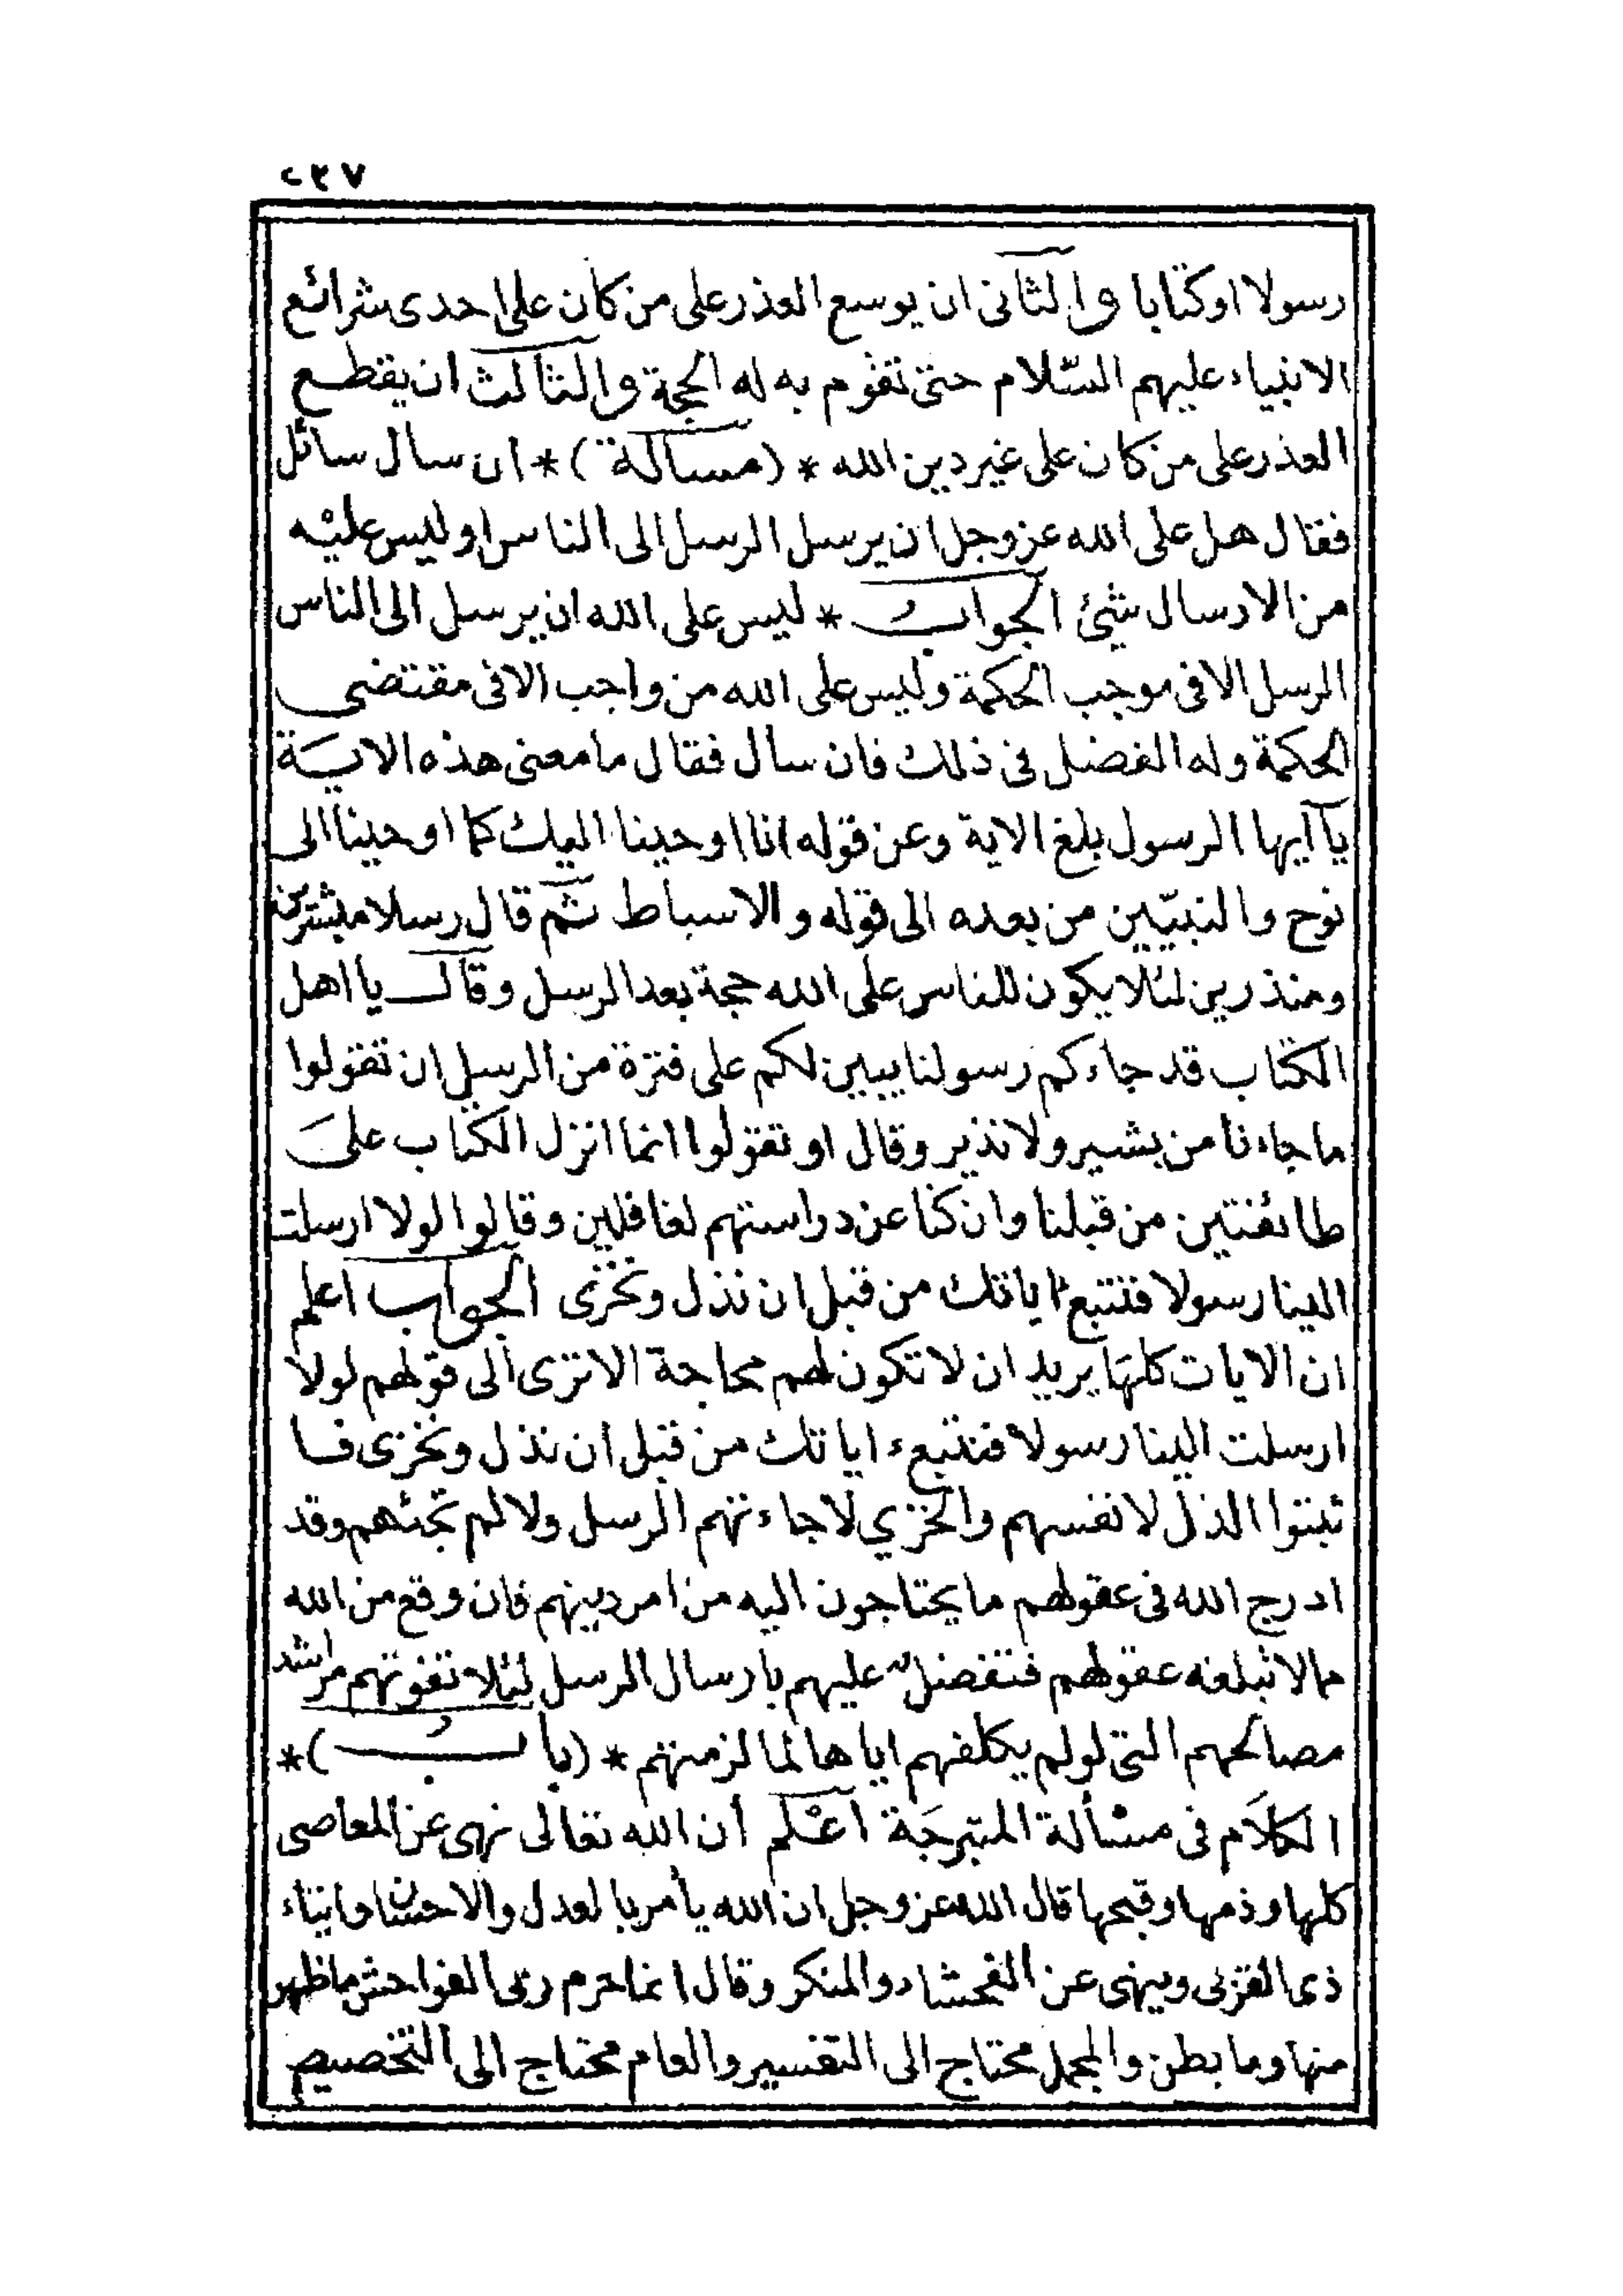 ٢٣٧
رسولا او كتابا والثاني ان يوسع العذر على من كان على احدى شرائع
الانبياء عليهم السّلام حتى تقوم به له الحجة والثالث ان يقطع
العذر على من كان على غير دين الله * (مسألة) * ان سال سائل
فقال هل على الله عز وجل ان يرسل الرسل الى الناس او ليس عليه
من الارسال شيئ الجواب * ليس على الله ان يرسل الى الناس
الرسل الا في موجب الحكمة وليس على الله من واجب الا في مقتضى
الحكمة وله الفضل في ذلك فان سال فقال ما معنى هذه الاية
يآ ايها الرسول بلغ الاية وعن قوله انا اوحينا اليك كما اوحينا الى
نوح والنبيّين من بعده الى قوله والاسباط ثم قال رسلا مبشرين
ومنذرين لئلا يكون للناس على الله حجة بعد الرسل وقال يا اهل
الكتاب قد جاءكم رسولنا يبين لكم على فترة من الرسل ان تقولوا
ما جاءنا من بشير ولا نذير وقال او تقولوا انما انزل الكتاب على
طائفتين من قبلنا وان كنا عن دراستهم لغافلين وقالوا لولا ارسلت
الينا رسولا فنتبع اياتك من قبل ان نذل ونخزى الجواب اعلم
ان الايات كلها يريد ان لا تكون لهم محاجة الا ترى الى قولهم لولا
ارسلت الينا رسولا فنتبع اياتك من قبل ان نذل ونخزى فا
ثبتوا الذل لانفسهم والخزي لا جاءتهم الرسل ولا لم تجئهم وقد
ادرج الله في عقولهم ما يحتاجون اليه من امر دينهم فان وقع من الله
مما لا تبلغه عقولهم فتفضل عليهم بارسال الرسل لئلا تفوتهم مراشد
مصالحهم التي لو لم يكلفهم اياها لما لزمتهم * (باب) *
الكلام في مسألة المتبرجة اعلم أن الله تعالى نهى عن المعاصي
كلها وذمها وقبحها قال الله عز وجل ان الله يأمر بالعدل والاحسان وايتاء
ذى القربى وينهى عن الفحشاء والمنكر وقال انما حرم ربى الفواحش ما ظهر
منها وما بطن والمجمل محتاج الى التفسير والعام محتاج الى التخصيص